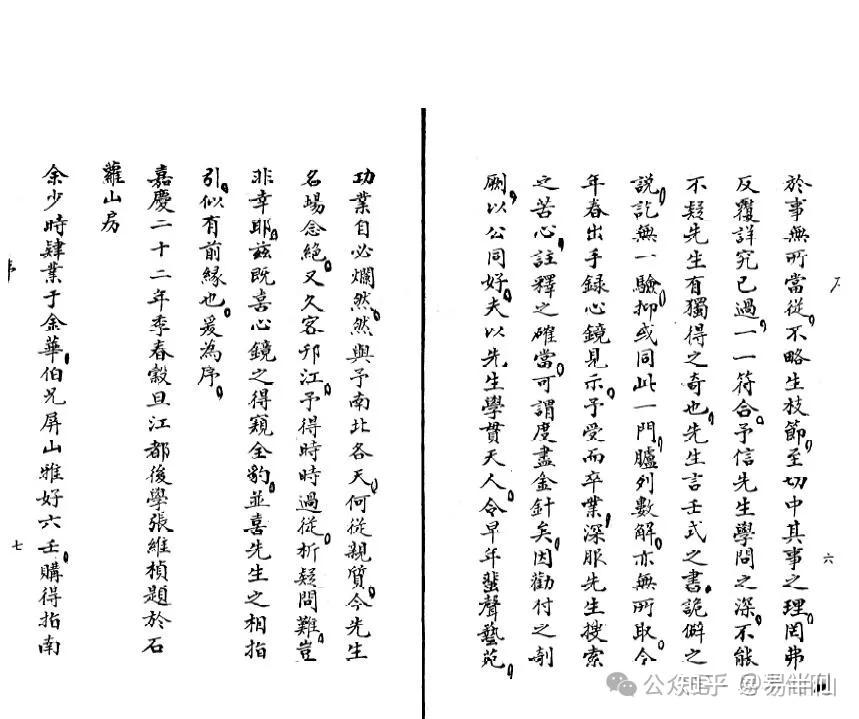 於事無所當從、不略生枝節、至切中其事之理、罔弗
反覆詳究已過、一一符合、予信先生學問之深、不能
不疑先生有獨得之奇也、先生言壬式之書、詭僻之
說、訖無一驗、抑或同此一門、臚列數解、亦無所取、今
年春出手録心鏡見示、予受而卒業、深服先生搜索
之苦心、註釋之確當、可謂度盡金針矣、因勸付之剞
劂、以公同好、夫以先生學貫天人、令早年蜚聲藝苑、
六
功業自必爛然、然與予南北各天、何從親質、今先生
名場念絕、又久客邗江、予得時時過從、析疑問難、豈
非幸耶、兹既喜心鏡之得窺全豹、並喜先生之相指
引、似有前緣也、爰為序、
嘉慶二十二年季春穀旦江都後學張維楨題於石
蘿山房
余少時肄業于金華、伯兄屏山雅好六壬、購得指南
七
公众号:易半仙